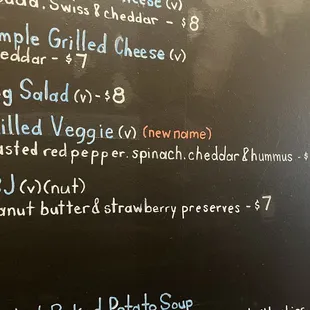 Cheese (v)
Swiss & cheddar - $8
Simple Grilled Cheese (v)
cheddar - $7
Egg Salad (v) - $8
Grilled Veggie (v) (new name)
roasted red pepper. spinach. cheddar & hummus - $
PB&J (v) (nut)
peanut butter & strawberry preserves - $7
Baked Potato Soup